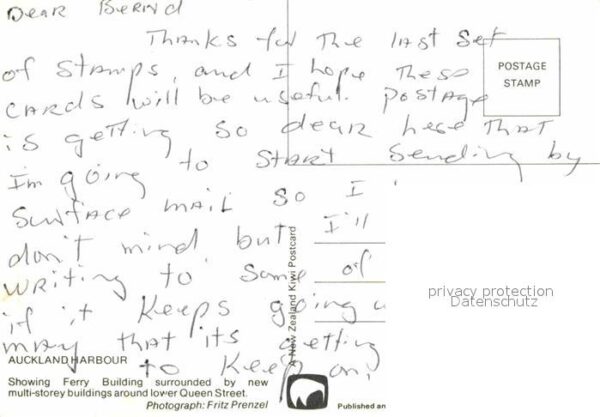 Dear Bernd
Thanks for the last set
of stamps, and I hope these
cards will be useful. Postage
is getting so dear here that
I'm going to start sending by
surface mail so I
don't mind, but I'll
writing to some of
if it keeps going u
may that its getting
to keep on,
POSTAGE
STAMP
A New Zealand Kiwi Postcard
privacy protection
Datenschutz
AUCKLAND HARBOUR
Showing Ferry Building surrounded by new
multi-storey buildings around lower Queen Street.
Photograph: Fritz Prenzel
Published an